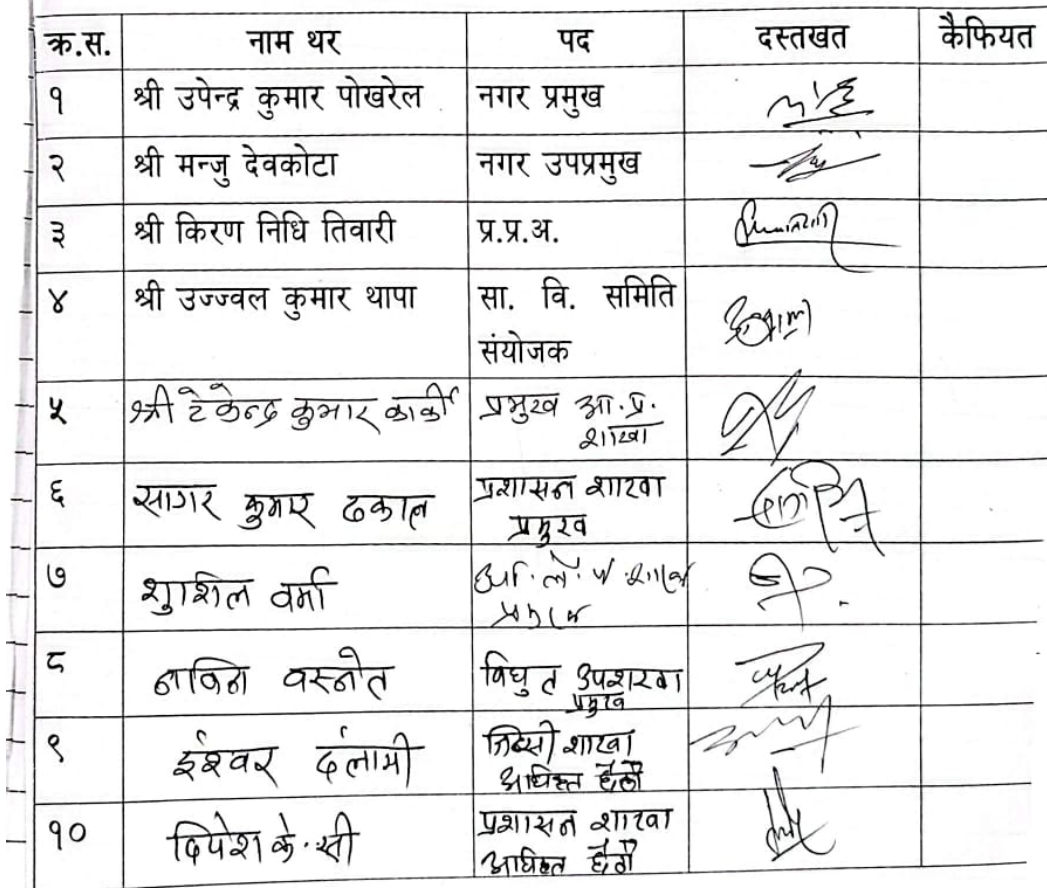 क्र.स. नाम थर पद दस्तखत कैफियत
१ श्री उपेन्द्र कुमार पोखरेल नगर प्रमुख
२ श्री मन्जु देवकोटा नगर उपप्रमुख
३ श्री किरण निधि तिवारी प्र.प्र.अ.
४ श्री उज्ज्वल कुमार थापा सा. वि. समिति
संयोजक
५ श्री टेकेन्द्र कुमार कार्की प्रमुख आ.प्र.
शाखा
६ सागर कुमार ढकाल प्रशासन शाखा
प्रमुख
७ शुशिल वर्मा
८ नविन वस्नेत विधुत उपशाखा
प्रमुख
९ ईश्वर दलामी जिन्सी शाखा
अधिकृत छैठौ
१० दिपेश के.सी प्रशासन शाखा
अधिकृत छैठौ